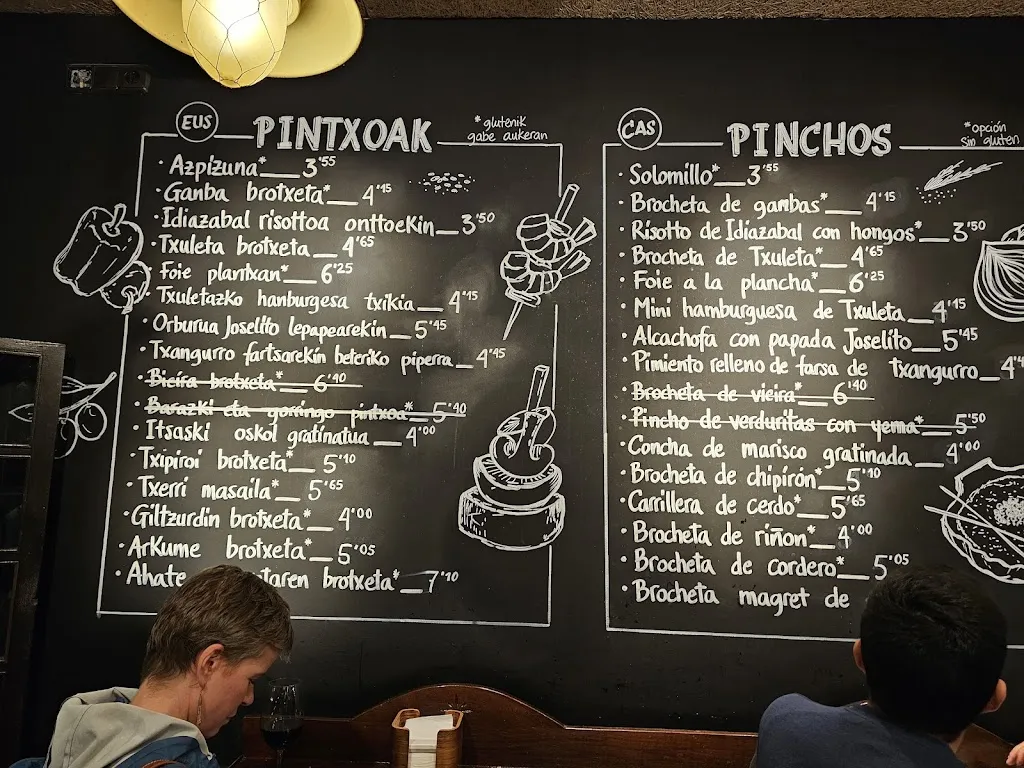 EUS
PINTXOAK
*glutenik
gabe aukeran
· Azpizuna* 3'55
· Ganba brotxeta* 4'15
· Idiazabal risottoa onttoekin 3'50
· Txuleta brotxeta 4'65
· Foie plantxan* 6'25
· Txuletazko hanburgesa txikia 4'15
· Orburua Joselito lepapearekin 5'45
· Txangurro fartsarekin beteriko piperra 4'45
· Bieira brotxeta* 6'40
· Barazki eta gorringo pintxoa* 5'40
· Itsaski oskol gratinatua 4'00
· Txipiroi brotxeta* 5'10
· Txerri masaila* 5'65
· Giltzurdin brotxeta* 4'00
· Arkume brotxeta* 5'05
· Ahate brotxeta* 7'10
CAS
PINCHOS
*opción
sin gluten
· Solomillo* 3'55
· Brocheta de gambas* 4'15
· Risotto de Idiazabal con hongos* 3'50
· Brocheta de Txuleta* 4'65
· Foie a la plancha* 6'25
· Mini hamburguesa de Txuleta 4'15
· Alcachofa con papada Joselito 5'45
· Pimiento relleno de farsa de txangurro
· Brocheta de vieira* 6'40
· Pincho de verduritas con yema* 5'50
· Concha de marisco gratinada 4'00
· Brocheta de chipirón* 5'10
· Carrillera de cerdo* 5'65
· Brocheta de riñon* 4'00
· Brocheta de cordero* 5'05
· Brocheta magret de